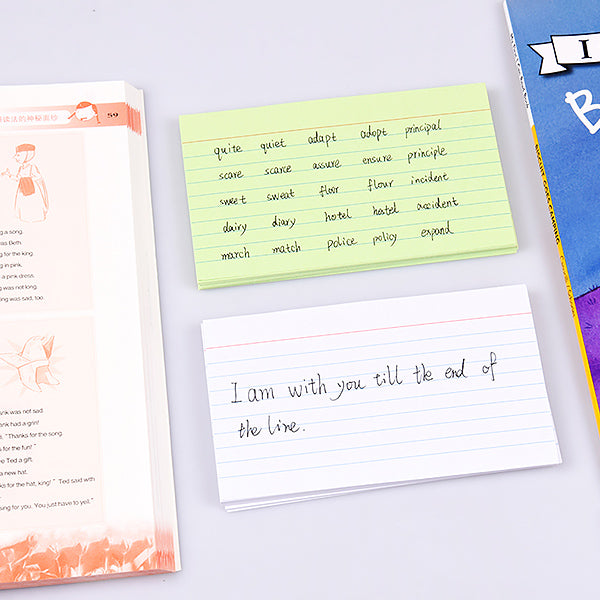 读法的神秘面纱 59
g a song.
as Beth.
g for the king.
g in pink,
a pink dress.
g was not long.
g was sad, too.
nk was not sad
nk had a grin!
d, "Thanks for the song.
s for the fun!"
e Ted a gift.
a new hat.
ks for the hat, king!" Ted said with
sing for you. You just have to yell."
quite quiet adapt adopt principal
scare scarce assure ensure principle
sweet sweat floor flour incident
dairy diary hotel hostel accident
march match police policy expand
I am with you till the end of
the line.
I
B